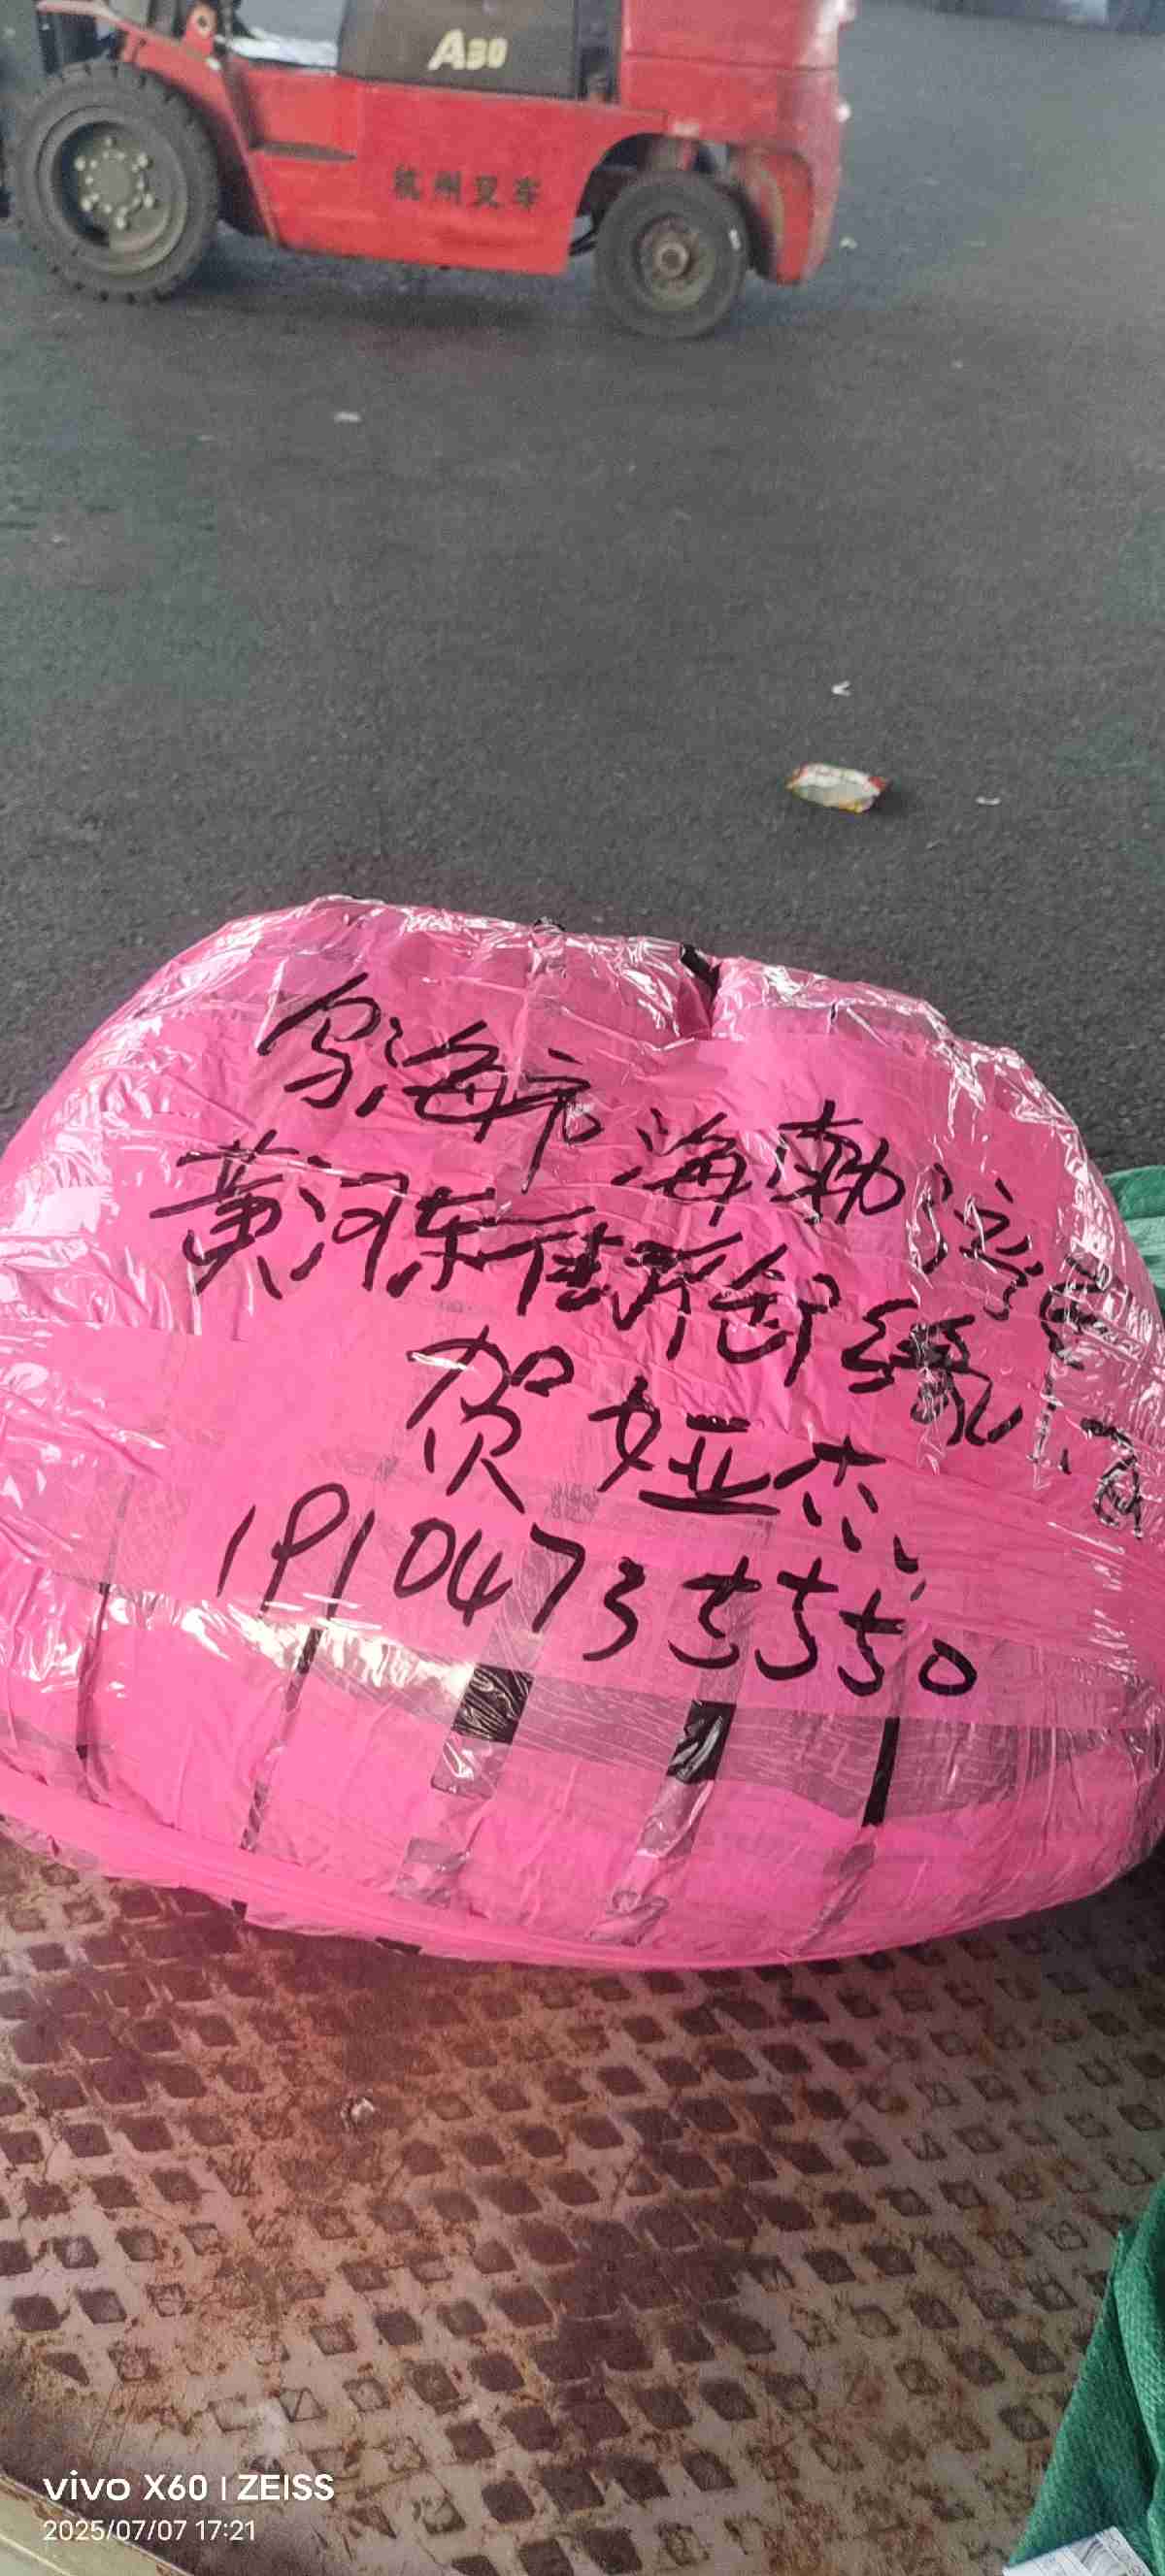 A30
杭州叉车
乌海市海勃湾
黄河东街
贺娅杰
19104735550
vivo X60 | ZEISS
2025/07/07 17:21